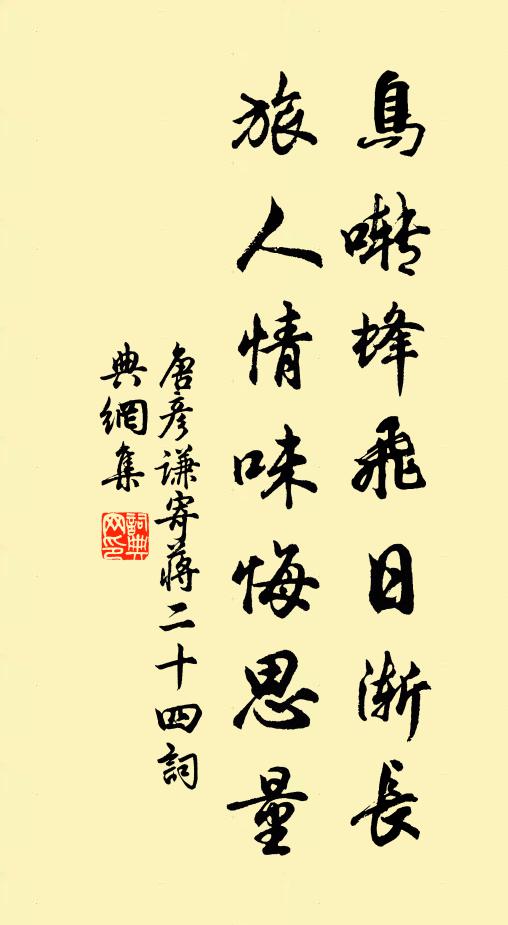 鳥囀蜂飛日漸長
旅人情味悔思量
唐彥謙寄蔣二十四詞
典網集
詞典
網印